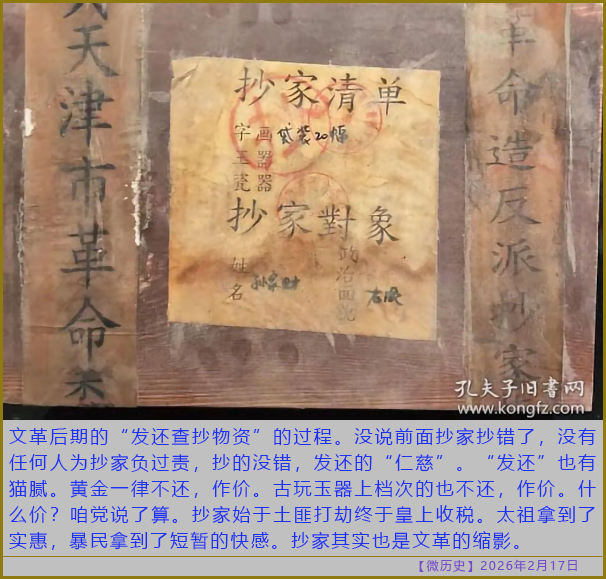 天津市革命
抄家清单
字画 贰拾20幅
玉器
瓷器
抄家對象
姓名
政治面貌
革命造反派抄家
孔夫子旧书网
www.kongfz.com
文革后期的“发还查抄物资”的过程。没说前面抄家抄错了，没有
任何人为抄家负过责，抄的没错，发还的“仁慈”。“发还”也有
猫腻。黄金一律不还，作价。古玩玉器上档次的也不还，作价。什
么价？咱党说了算。抄家始于土匪打劫终于皇上收税。太祖拿到了
实惠，暴民拿到了短暂的快感。抄家其实也是文革的缩影。
【微历史】2026年2月17日